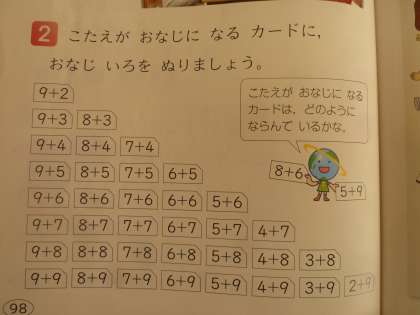 2 こたえが おなじに なる カードに,
おなじ いろを ぬりましょう。
こたえが おなじに なる
カードは, どのように
ならんで いるかな。
8+6
5+9
9+2
9+3 8+3
9+4 8+4 7+4
9+5 8+5 7+5 6+5
9+6 8+6 7+6 6+6 5+6
9+7 8+7 7+7 6+7 5+7 4+7
9+8 8+8 7+8 6+8 5+8 4+8 3+8
9+9 8+9 7+9 6+9 5+9 4+9 3+9 2+9
98